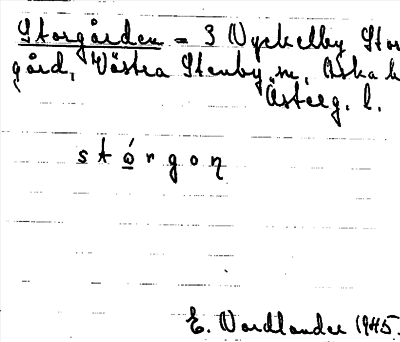 Storgården = 3 Nyckelby Stor
gård, Västra Stenby sn, Aska h
Österg. l.
stórgoŋ
E. Nordlander 1945.